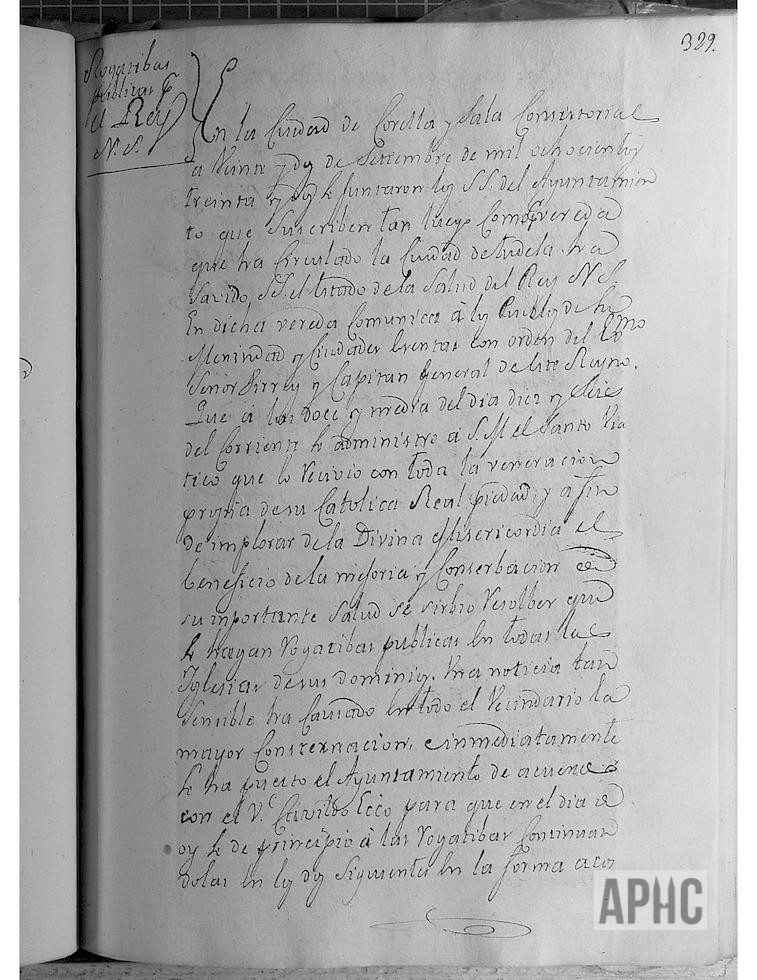 329.
Rogatibas
publicas pr
el Rey
N. S.
En la Ciudad de Corella y Sala Consistorial
a Veinte y dos de Setiembre de mil ochocientos
treinta y dos se Juntaron los SS. del Ayuntamien
to que Suscriben tan luego Como por vereda
que ha Circulado la Ciudad de Tudela ha
Savido SS. el estado de la Salud del Rey N. S.
En dicha vereda Comunica á los Pueblos de su
Merindad y Ciudades Esentas con orden del Exmo
Señor Virrey y Capitan General de este Reyno.
Que á las doce y media del dia diez y seis
del Corriente se administro á S. M. el Santo Via
tico que lo Recivio con toda la veneracion
propia de su Catolica Real piedad, y a fin
de implorar de la Divina Misericordia el
beneficio de la mejoria y Conserbacion de
su importante Salud se sirbio Resolber que
se hagan Rogatibas publicas en todas las
Iglesias de sus dominios. Una noticia tan
Sensible ha Causado en todo el Vecindario la
mayor Consternacion, e inmediatamente
se ha puesto el Ayuntamiento de acuerdo
con el V.e Cavildo Ecco para que en el dia de
oy se de principio á las Rogatibas Continuan
dolas en los dos Siguientes en la forma acos
APHC